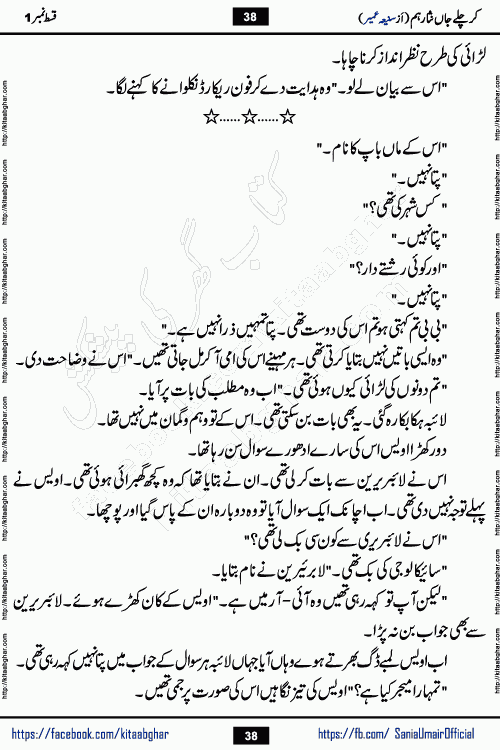 کر چلے جاں نثار ہم (از سنیعہ عمیر)
38
قسط نمبر 1
لڑائی کی طرح نظر انداز کرنا چاہا۔
"اس سے بیان لے لو۔" وہ ہدایت دے کر فون ریکارڈ نکلوانے کا کہنے لگا۔
☆......☆......☆
"اس کے ماں باپ کا نام۔"
"پتا نہیں۔"
"کس شہر کی تھی؟"
"پتا نہیں۔"
"اور کوئی رشتے دار؟"
"پتا نہیں۔"
"بی بی تم کہتی ہو تم اس کی دوست تھی۔ پتا تمہیں ذرا نہیں ہے۔"
"وہ ایسی باتیں نہیں بتایا کرتی تھی۔ ہر مہینے اس کی امی آ کر مل جاتی تھیں۔" اس نے وضاحت دی۔
"تم دونوں کی لڑائی کیوں ہوئی تھی۔" اب وہ مطلب کی بات پر آیا۔
لائبہ ہکا بکا رہ گئی۔ یہ بھی بات بن سکتی تھی۔ اس کے تو وہم و گمان میں نہیں تھا۔
دور کھڑا اویس اس کی سارے ادھورے سوال سن رہا تھا۔
اس نے لائبریرین سے بات کر لی تھی۔ ان نے بتایا تھا کہ وہ کچھ گھبرائی ہوئی تھی۔ اویس نے
پہلے توجہ نہیں دی تھی۔ اب اچانک ایک سوال آیا تو وہ دوبارہ ان کے پاس گیا اور پوچھا۔
"اس نے لائبریری سے کون سی بک لی تھی؟"
"سائیکالوجی کی بک تھی۔" لائبریرین نے نام بتایا۔
"لیکن آپ تو کہہ رہی تھیں وہ آئی-آر میں ہے۔" اویس کے کان کھڑے ہوئے۔ لائبریرین
سے بھی جواب بن نہ پڑا۔
اب اویس لمبے ڈگ بھرتے ہوے وہاں آیا جہاں لائبہ ہر سوال کے جواب میں پتا نہیں کہہ رہی تھی۔
"تمہارا میجر کیا ہے؟" اویس کی تیز نگاہیں اس کی صورت پر جمی تھیں۔
https://facebook.com/kitaabghar
38
https://fb.com/ SaniaUmairOfficial
http://kitaabghar.com